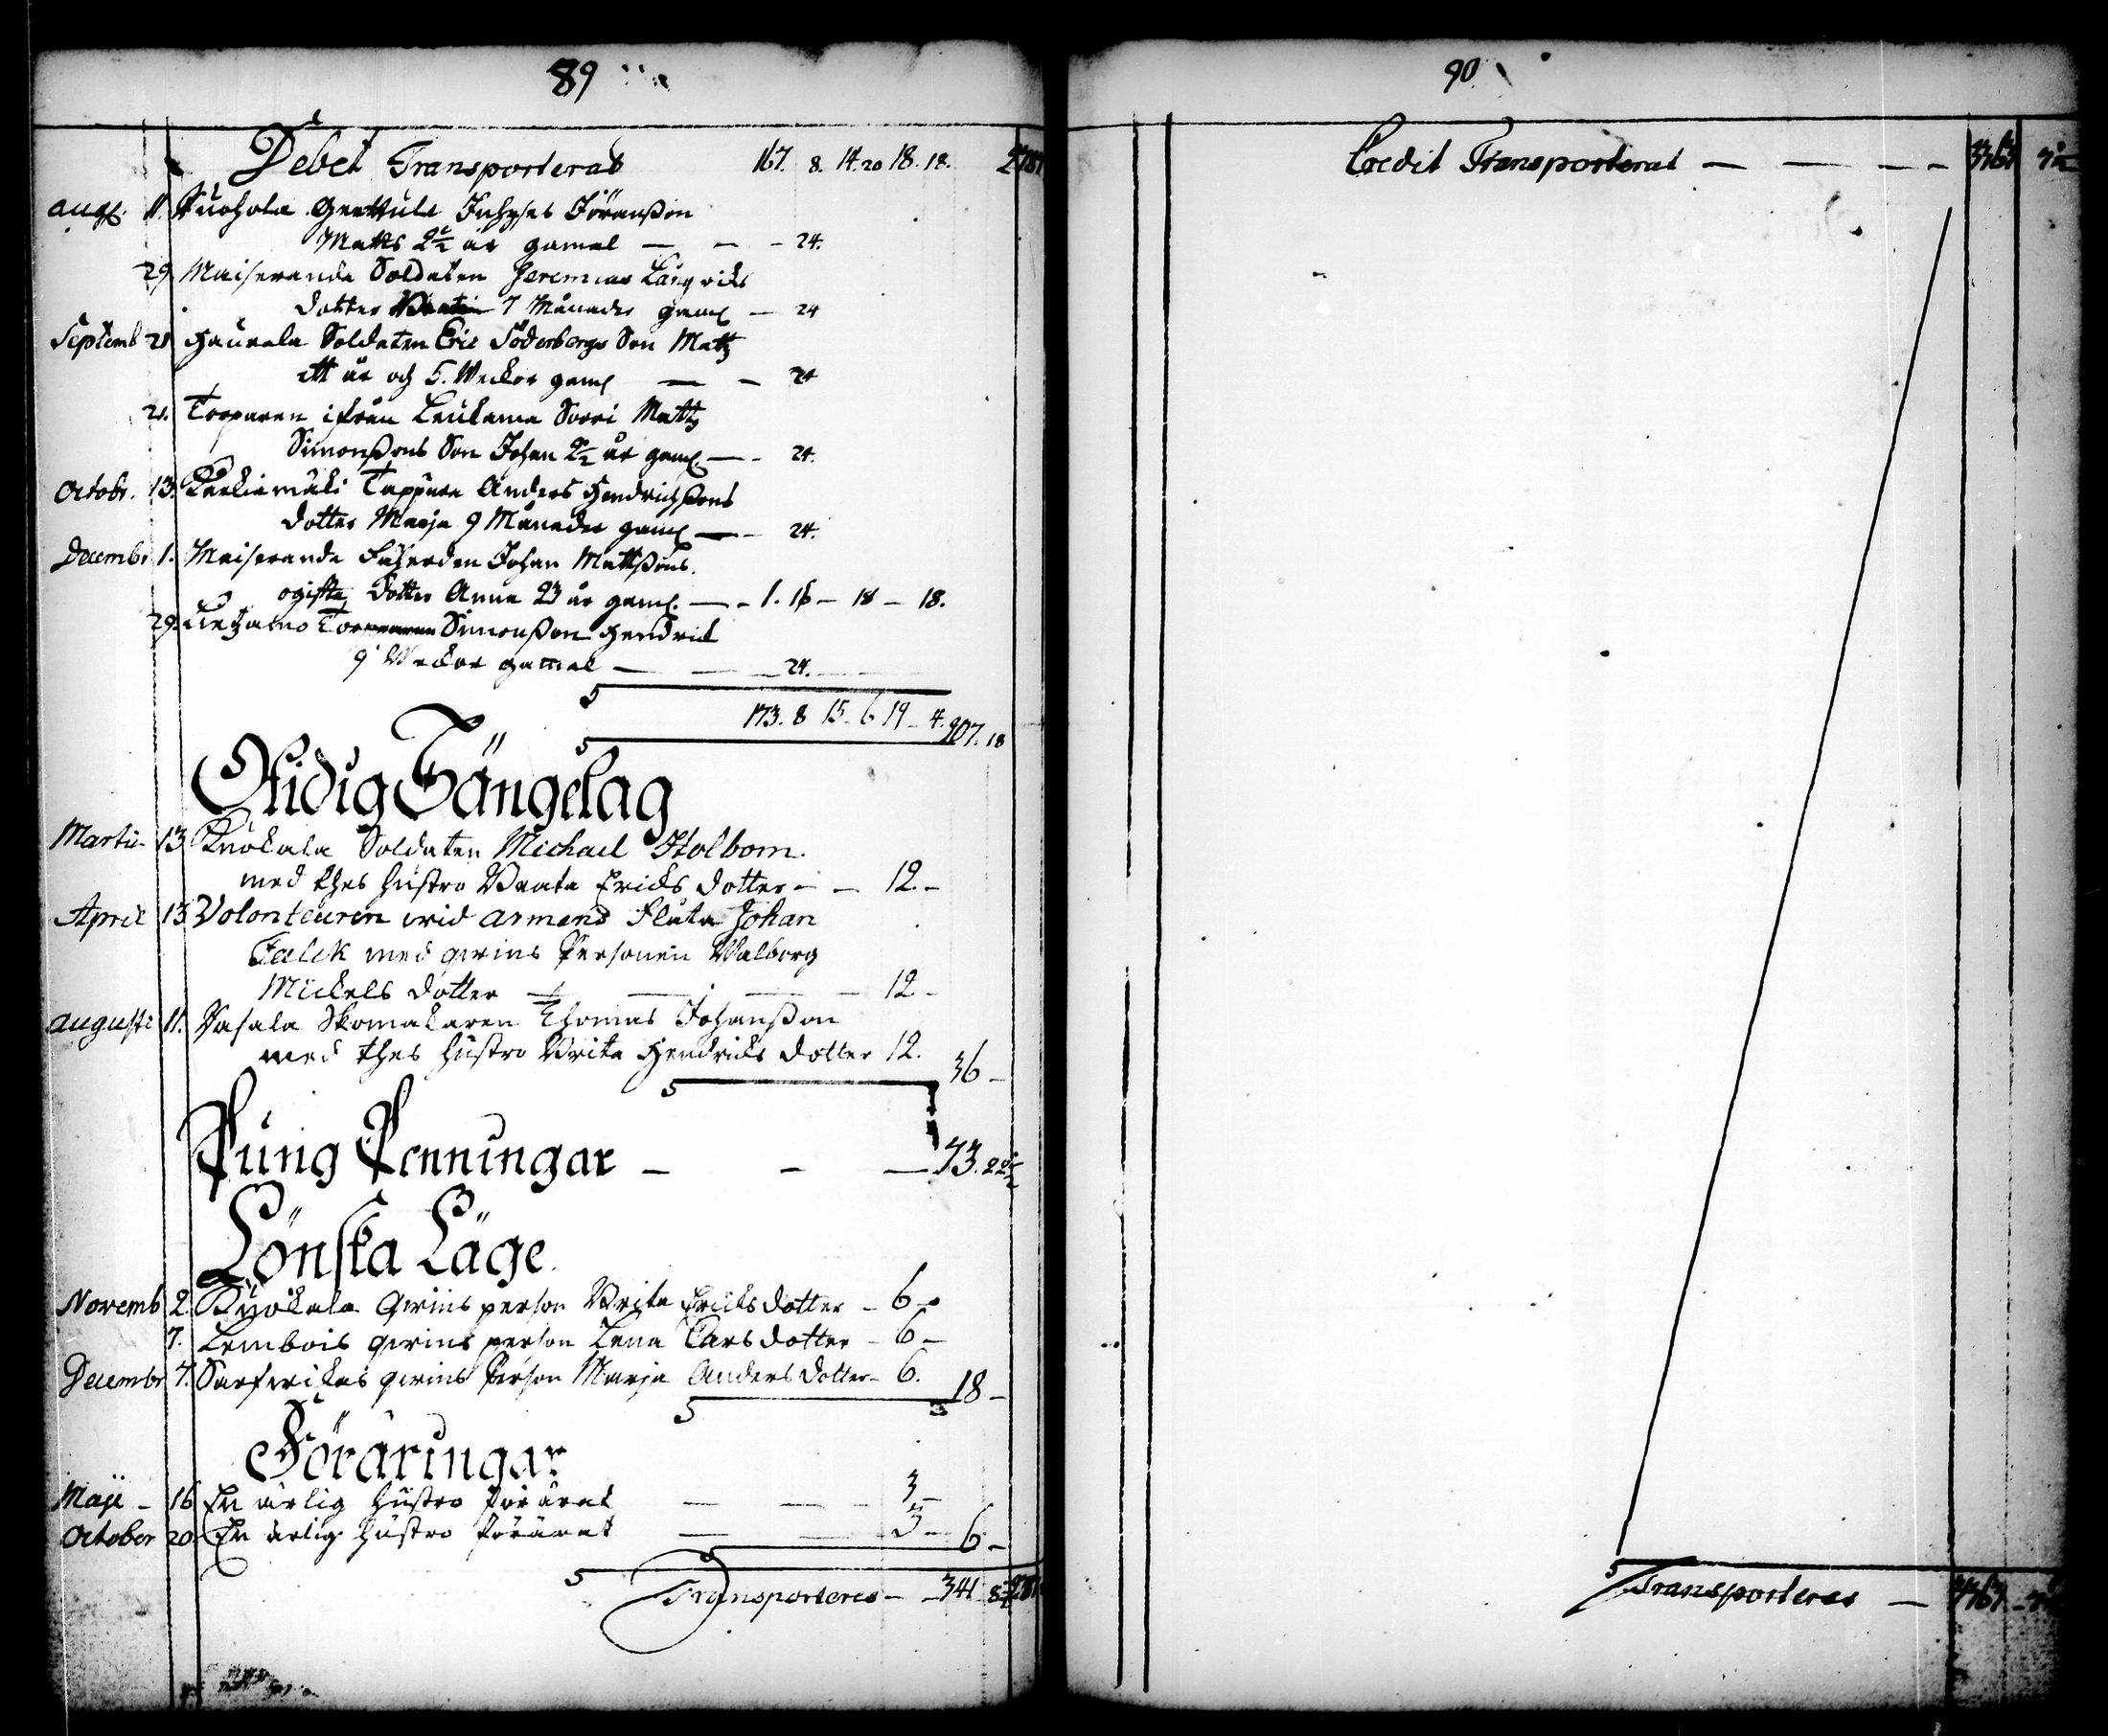 89
Debet Transporterat 167. 8. 14. 20 18. 18.
Aug. 11. Puohola Grettula Inhyses Jöranßon
Matts 2½ år gamal — — - 24.
29 Maiseranda Soldaten Jeremias Långwiks
dotter 7 Månader gaml — 24
Septemb 21 Haurala Soldaten Eric Söderbergs Son Matz
ett år och 5. Weckor gaml — - 24
21. Torparen ifrån Leukama Sorri Matz
Simonßons Son Johan 2½ år gaml — - 24.
Octobr. 13. Karkiamäki Tappura Anders Hendrichßons
dotter Marja 9 Månader gaml — - 24.
Decembr 1. Maiseranda Johan Mattßons
ogifta dotter Anna 23 år gaml. — - 1. 16 - 18 - 18.
29. Simonßon Hendrick
9 Weckor gamal — — - 24.
173. 8 15 - 6 19 - 4. 207. 18
Otidig Sängelag
Martii 13 Kuokala Soldaten Michael Holbom
med thes hustru Beata Erichs dotter - - 12 -
April 13 Volonteuren wid armens Flåta Johan
Falck med qwins Personen Walborg
Mickels dotter — — — - 12 -
Augusti 11. Pasala Skomakaren Thomas Johanßon
med thes hustro Brita Hendrichs dotter 12. 36 -
Pung Penningar — - — 73. 22½
Lönska Läge
Novemb 2. Kuokala Qwins person Brita Erichs dotter - 6 -
7. Lembois qwins person Lena Larsdotter - 6 -
Decembr 7. Sarfwikas qwins Person Marja Andersdotter - 6. 18 -
Föräringar
Maji - 16 En ärlig hustro förärat — — - 3 -
October 20. En ärlig hustro förärat — — 3 - 6 -
Transporteres - - 341
90.
Credit Transporterat — — - -
Transporteres —